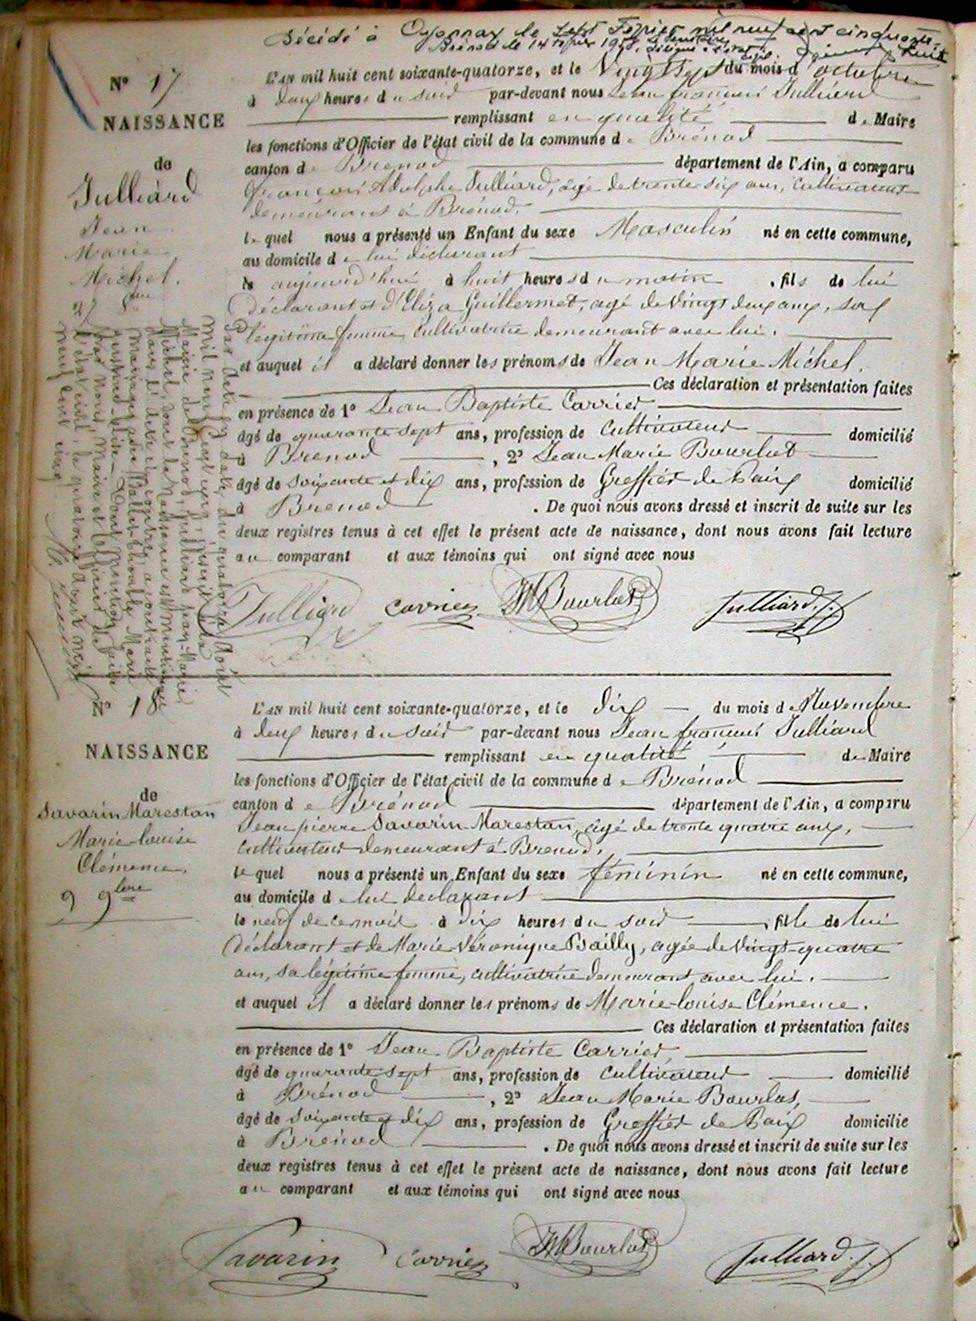 Décédé à Oyonnax le sept Février mil neuf cent cinquante
Brénod le 14
N° 17
NAISSANCE
de
Julliard
Jean
Marie
Michel.
27 8bre
L'AN mil huit cent soixante-quatorze, et le Vingt sept du mois d'octobre
à deux heures du soir par-devant nous Jean françois Julliard
remplissant en qualité de Maire
les fonctions d'Officier de l'état civil de la commune de Brénod
canton de Brenod département de l'Ain, a comparu
françois Adolphe Julliard, âgé de trente six ans, cultivateur
demeurant à Brénod.
lequel nous a présenté un Enfant du sexe Masculin né en cette commune,
au domicile de lui déclarant
le aujourd'hui à huit heures du matin, fils de lui
déclarant et d'Eliza Guillermet, agé de vingt deux ans, sa
légitime femme, cultivatrice demeurant avec lui.
et auquel il a déclaré donner les prénoms de Jean Marie Michel.
Ces déclaration et présentation faites
en présence de 1° Jean Baptiste Carrier
âgé de quarante sept ans, profession de cultivateur domicilié
à Brenod, 2° Jean Marie Bourlot
âgé de soixante et dix ans, profession de Greffier de Paix domicilié
à Brenod. De quoi nous avons dressé et inscrit de suite sur les
deux registres tenus à cet effet le présent acte de naissance, dont nous avons fait lecture
au comparant et aux témoins qui ont signé avec nous
Julliard Carrier JM Bourlot Julliard J.
Par acte en date du quatorze Août
mil neuf cent cinq
Mairie de Brénod, Julliard Jean-Marie
Michel, dont la naissance est mentionnée
dans l'acte ci-contre, a contracté
mariage avec Marie
N° 18
NAISSANCE
de
Savarin Marestan
Marie-louise
Clémence,
9 9bre
L'AN mil huit cent soixante-quatorze, et le dix du mois de Novembre
à deux heures du soir par-devant nous Jean françois Julliard
remplissant en qualité de Maire
les fonctions d'Officier de l'état civil de la commune de Brénod
canton de Brénod département de l'Ain, a comparu
Jean pierre Savarin Marestan, âgé de trente quatre ans,
cultivateur demeurant à Brenod,
lequel nous a présenté un Enfant du sexe féminin né en cette commune,
au domicile de lui declarant
le neuf de ce mois à dix heures du soir, fille de lui
déclarant et de Marie Véronique Bailly, agée de vingt-quatre
ans, sa légitime femme, cultivatrice demeurant avec lui.
et auquel il a déclaré donner les prénoms de Marie-louise Clémence.
Ces déclaration et présentation faites
en présence de 1° Jean Baptiste Carrier
âgé de quarante sept ans, profession de cultivateur domicilié
à Brénod, 2° Jean Marie Bourlot,
âgé de soixante et dix ans, profession de Greffier de Paix domicilié
à Brenod. De quoi nous avons dressé et inscrit de suite sur les
deux registres tenus à cet effet le présent acte de naissance, dont nous avons fait lecture
au comparant et aux témoins qui ont signé avec nous
Savarin Carrier JM Bourlot Julliard J.